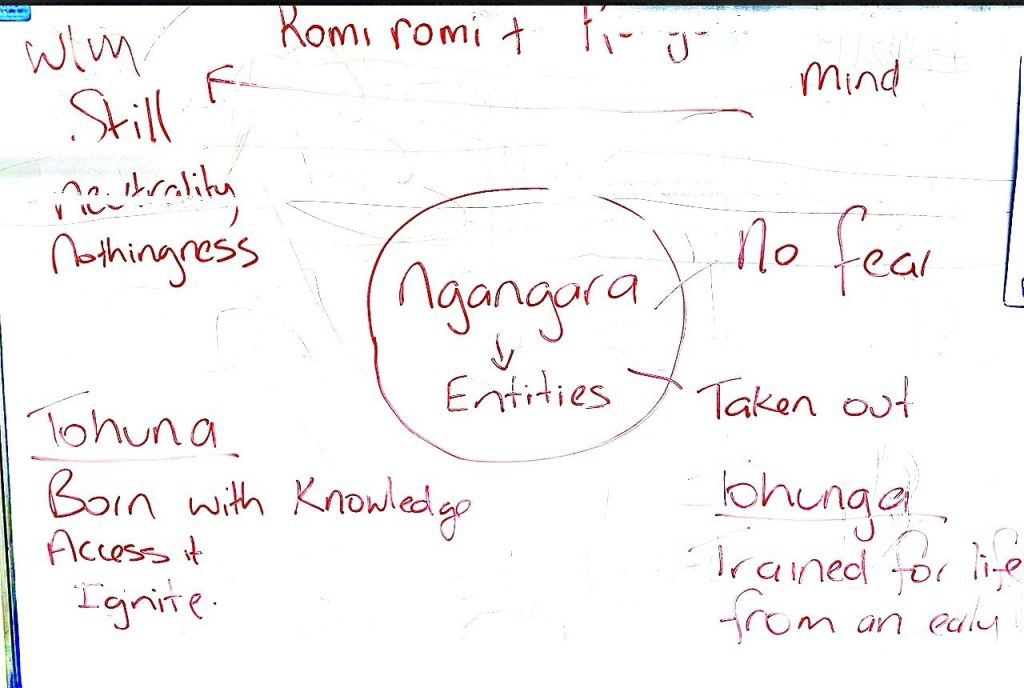 Romiromi +
Mind
Still
Neutrality,
Nothingness
Ngangara
↓
Entities
No fear
Taken out
Tohuna
Born with Knowledge
Access it
Ignite.
Tohunga
Trained for life
from an ealy